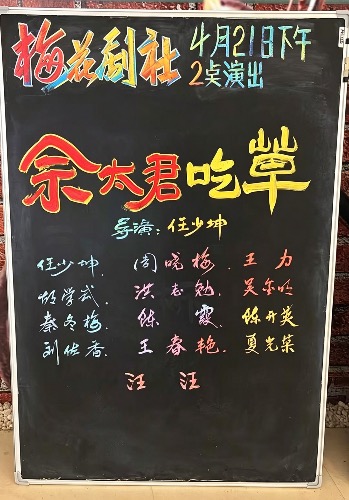 梅花剧社 4月21日下午
2点演出
佘太君吃草
导演:任少坤
任少坤. 周晓梅. 王力
胡学武. 洪志 吴金明
秦冬梅. 陈霞. 陈开英
刘佐香. 王春艳. 夏光荣
汪 汪